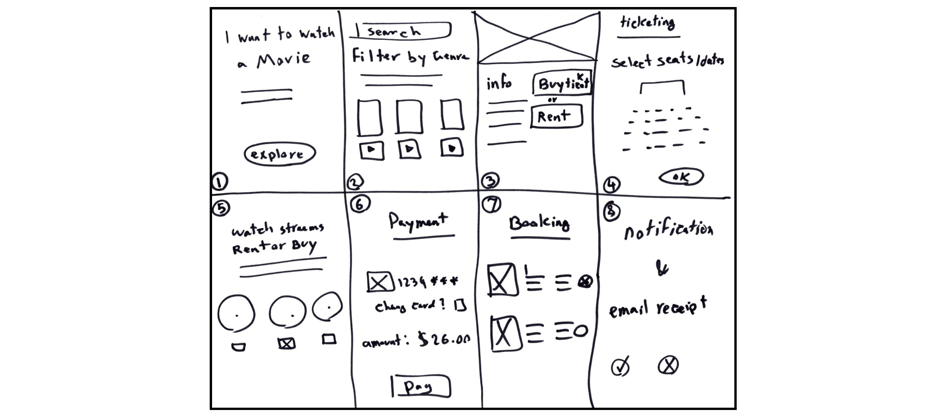 I want to watch
a Movie
explore
1
search
Filter by Genre
2
info
Buy ticket
or
Rent
3
ticketing
select seats/dates
OK
4
5
watch streams
Rent or Buy
6
Payment
1234 ***
chang card?
amount: $26.00
Pay
7
Booking
8
notification
&
email receipt